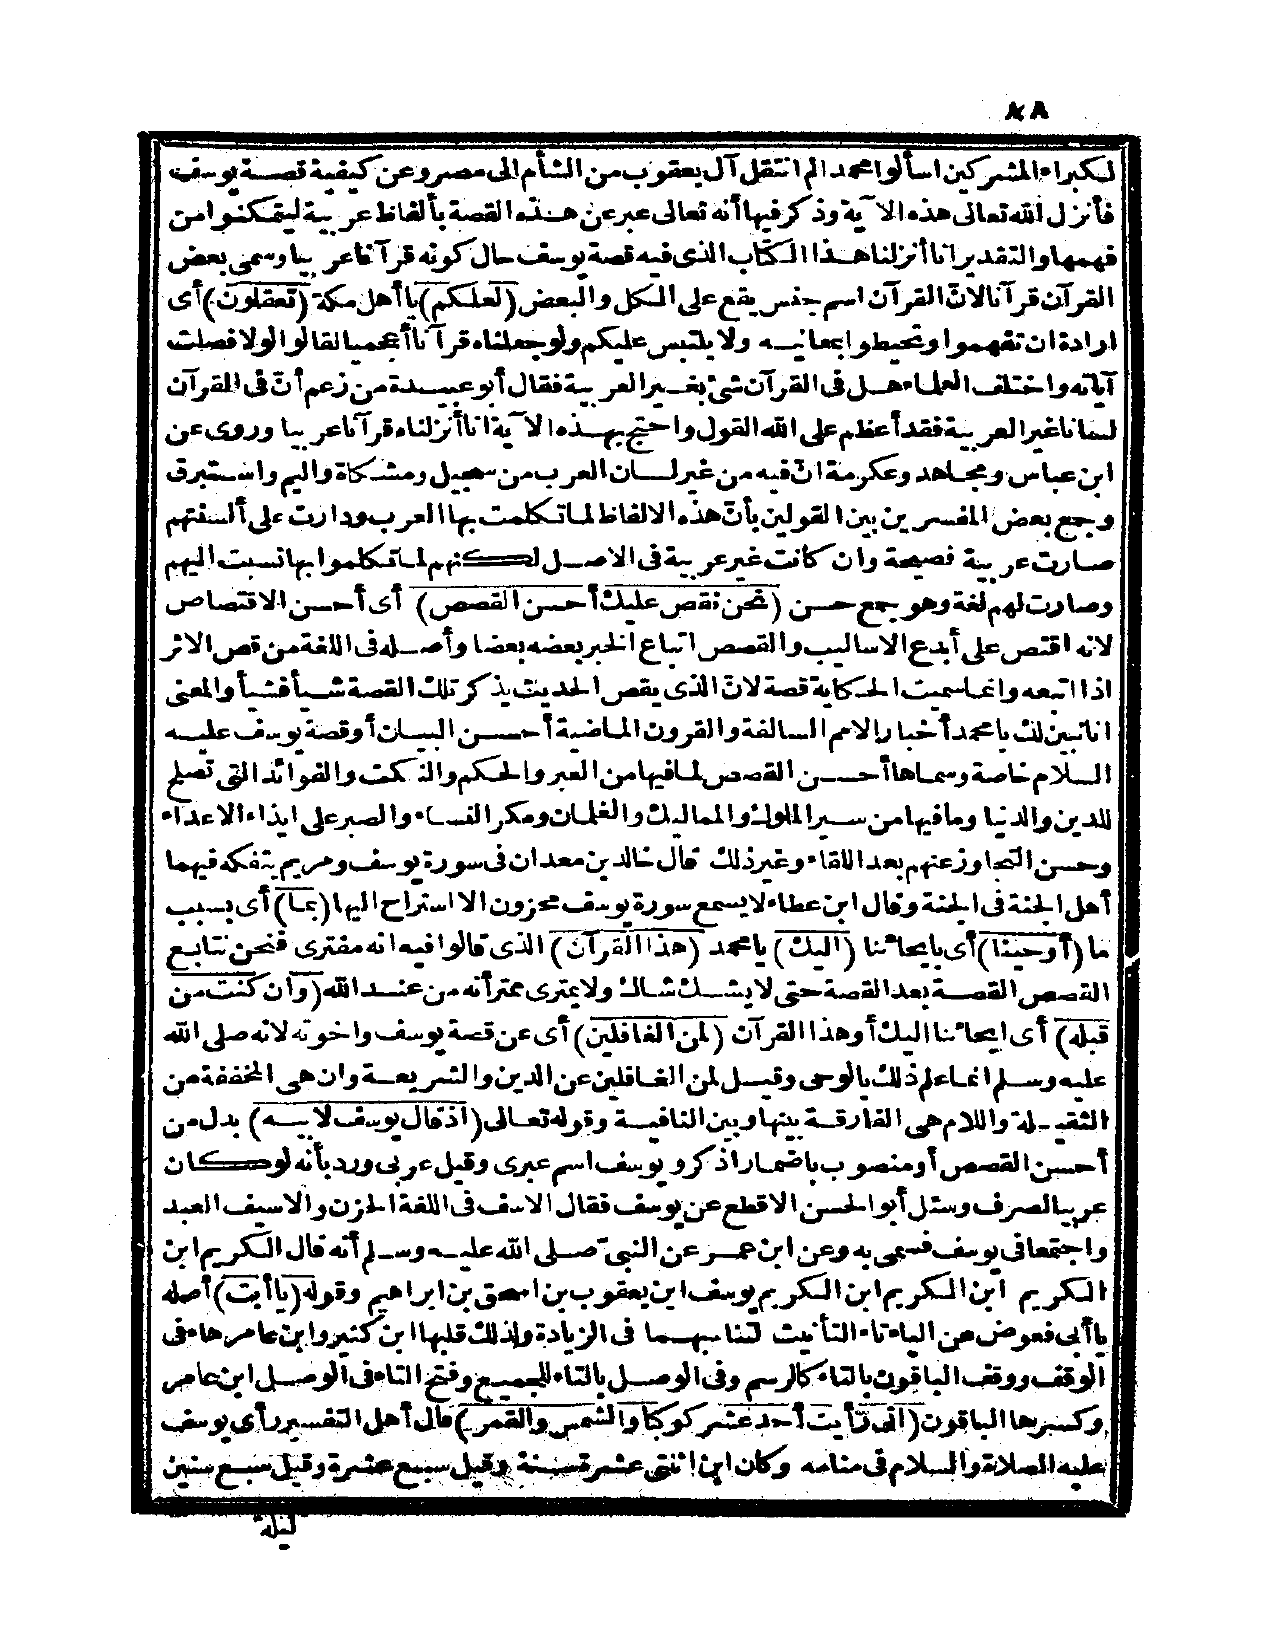 ٨٨
لكبراء المشركين اسألوا محمدا لم انتقل آل يعقوب من الشأم الى مصر وعن كيفية قصة يوسف
فأنزل الله تعالى هذه الآية وذكر فيها أنه تعالى عبر عن هذه القصة بألفاظ عربية ليتمكنوا من
فهمها والتقدير انا أنزلنا هذا الكتاب الذى فيه قصة يوسف حال كونه قرآنا عربيا وسمى بعض
القرآن قرآنا لانّ القرآن اسم جنس يقع على الكل والبعض (لعلكم) يا أهل مكة (تعقلون) أى
ارادة ان تفهموا وتحيطوا بمعانيه ولا يلتبس عليكم ولو جعلناه قرآنا أعجميا لقالوا لولا فصلت
آياته واختلف العلماء هل فى القرآن شئ بغير العربية فقال أبو عبيدة من زعم أنّ فى القرآن
لسانا غير العربية فقد أعظم على الله القول واحتج بهذه الآية انا أنزلناه قرآنا عربيا وروى عن
ابن عباس ومجاهد وعكرمة انّ فيه من غير لسان العرب من سجيل ومشكاة واليم واستبرق
وجمع بعض المفسرين بين القولين بأنّ هذه الالفاظ لما تكلمت بها العرب ودارت على ألسنتهم
صارت عربية فصيحة وان كانت غير عربية فى الاصل لكنهم لما تكلموا بها نسبت اليهم
وصارت لهم لغة وهو جمع حسن (نحن نقص عليك أحسن القصص) أى أحسن الاقتصاص
لانه اقتص على أبدع الاساليب والقصص اتباع الخبر بعضه بعضا وأصله فى اللغة من قص الاثر
اذا اتبعه وانما سميت الحكاية قصة لانّ الذى يقص الحديث يذكر تلك القصة شيأ فشيأ والمعنى
انا نبين لك يا محمد أخبار الامم السالفة والقرون الماضية أحسن البيان أو قصة يوسف عليه
السلام خاصة وسماها أحسن القصص لما فيها من العبر والحكم والنكت والفوائد التى تصلح
للدين والدنيا وما فيها من سير الملوك والمماليك والغلمان ومكر النساء والصبر على ايذاء الاعداء
وحسن التجاوز عنهم بعد اللقاء وغير ذلك قال خالد بن معدان فى سورة يوسف ومريم يتفكه فيهما
أهل الجنة فى الجنة وقال ابن عطاء لا يسمع سورة يوسف محزون الا استراح اليها (بما) أى بسبب
ما (أوحينا) أى بايحائنا (اليك) يا محمد (هذا القرآن) الذى قالوا فيه انه مفترى فنحن نتابع
القصص القصة بعد القصة حتى لا يشك شاك ولا يمترى ممتر أنه من عند الله (وان كنت من
قبله) أى ايحائنا اليك أو هذا القرآن (لمن الغافلين) أى عن قصة يوسف واخوته لانه صلى الله
عليه وسلم انما علم ذلك بالوحى وقيل لمن الغافلين عن الدين والشريعة وان هى المخففة من
الثقيلة واللام هى الفارقة بينها وبين النافية وقوله تعالى (اذ قال يوسف لابيه) بدل من
أحسن القصص أو منصوب باضمار اذكر ويوسف اسم عبرى وقيل عربى ورد بأنه لو كان
عربيا لصرف وسئل أبو الحسن الاقطع عن يوسف فقال الاسف فى اللغة الحزن والاسيف العبد
واجتمعا فى يوسف فسمى به وعن ابن عمر عن النبىّ صلى الله عليه وسلم أنه قال الكريم ابن
الكريم ابن الكريم ابن الكريم يوسف ابن يعقوب بن اسحق بن ابراهيم وقوله (يا أبت) أصله
يا أبى فعوض عن الياء تاء التأنيث لتناسبهما فى الزيادة ولذلك قلبها ابن كثير وابن عامر هاء فى
الوقف ووقف الباقون بالتاء كالرسم وفى الوصل بالتاء للجميع وفتح التاء فى الوصل ابن عامر
وكسرها الباقون (انى رأيت أحد عشر كوكبا والشمس والقمر) قال أهل التفسير رأى يوسف
عليه الصلاة والسلام فى منامه وكان ابن اثنتى عشرة سنة وقيل سبع عشرة وقيل سبع سنين
ليلة